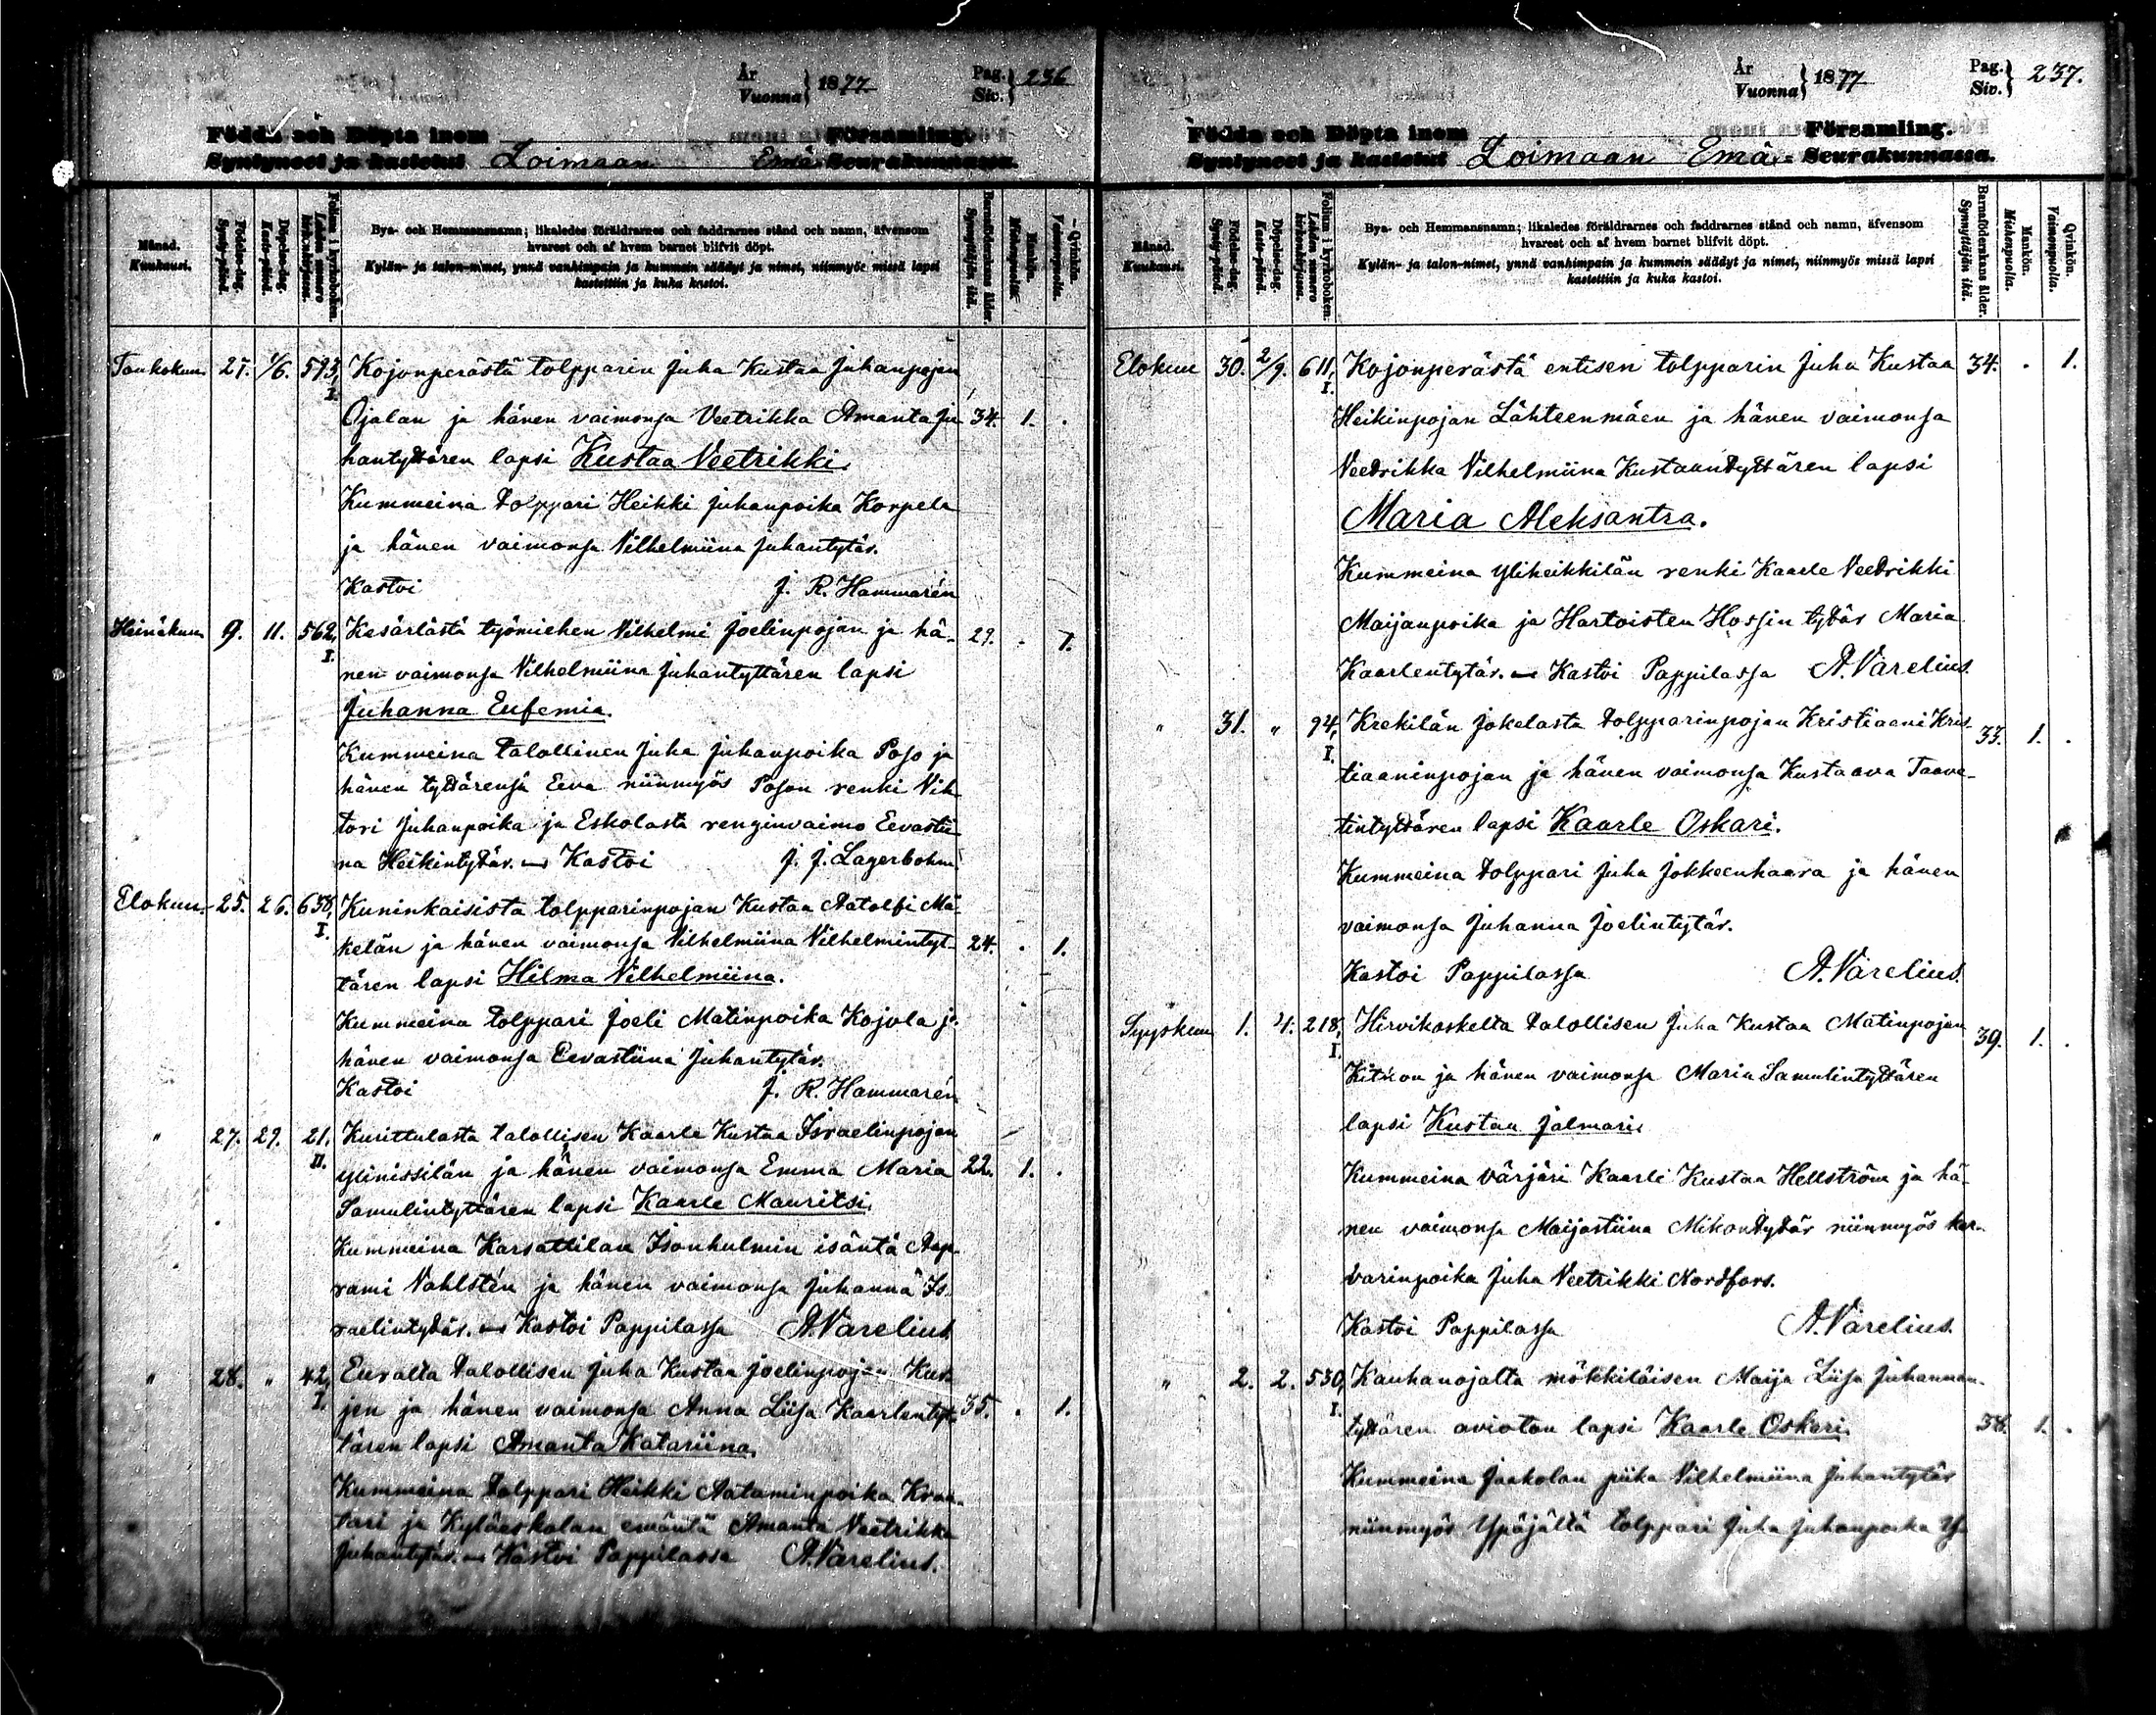 År
Vuonna } 1877
Pag.
Siv. } 236
Födda och Döpta inom Församling.
Syntyneet ja kastetut Loimaan Emä- Seurakunnassa.
Månad.
Kuukausi.
Födelse-dag.
Synty-päivä.
Döpelse-dag.
Kaste-päivä.
Folium i kyrkoboken.
Lehden numero kirkonkirjassa.
Bya- och Hemmansnamn; likaledes föräldrarnes och faddrarnes stånd och namn, äfvensom
hvarest och af hvem barnet blifvit döpt.
Kylän- ja talon-nimet, ynnä vanhimpain ja kummein säädyt ja nimet, niinmyös missä lapsi
kastettiin ja kuka kastoi.
Barnaföderskans ålder.
Synnyttäjän ikä.
Mankön.
Miehenpuolia.
Qvinkön.
Vaimonpuolia.
Toukokuu 27. 1/6. 593, I. Kojonperästä tolpparin Juha Kustaa Juhanpojan
Ojalan ja hänen vaimonsa Veetrikka Amanta Ju- 34. 1. .
hantyttären lapsi Kustaa Veetrikki.
Kummeina tolppari Heikki Juhanpoika Korpela
ja hänen vaimonsa Vilhelmiina Juhantytär.
Kastoi J. R. Hammarén
Heinäkuu 9. 11. 562, I. Kesärlästä työmiehen Vilhelmi Joelinpojan ja hä- 29. . 1.
nen vaimonsa Vilhelmiina Juhantyttären lapsi
Juhanna Eufemia.
Kummeina talollinen Juha Juhanpoika Poso ja
hänen tyttärensä Eeva niinmyös Poson renki Vih-
tori Juhanpoika ja Eskolasta renginvaimo Eevastii-
na Heikintytär. – Kastoi J. J. Lagerbohm.
Elokuu 25. 26. 638, I. Kuninkaisista tolpparinpojan Kustaa Aatolfi Mä-
kelän ja hänen vaimonsa Vilhelmiina Vilhelmintyt- 24. . 1.
tären lapsi Hilma Vilhelmiina.
Kummeina tolppari Joeli Matinpoika Kojola ja
hänen vaimonsa Eevastiina Juhantytär.
Kastoi J. R. Hammarén
" 27. 29. 21. II. Kurittulasta talollisen Kaarle Kustaa Israelinpojan
Ylinissilän ja hänen vaimonsa Emma Maria 22. 1. .
Samulintyttären lapsi Kaarle Mauritsi.
Kummeina Karsattilan Isonhulmin isäntä Aap-
rami Vahlstén ja hänen vaimonsa Juhanna Is-
raelintytär. – Kastoi Pappilassa A. Varelius.
" 28. " 42, I. Euralta talollisen Juha Kustaa Joelinpojan Kur-
jen ja hänen vaimonsa Anna Liisa Kaarlentyt- 35. . 1.
tären lapsi Amanta Katariina.
Kummeina tolppari Heikki Aataminpoika Kraa-
tari ja Kyläeskolan emäntä Amanta Veetrikka
Juhantytär. – Kastoi Pappilassa A. Varelius.
År
Vuonna } 1877
Pag.
Siv. } 237.
Födda och Döpta inom Församling.
Syntyneet ja kastetut Loimaan Emä- Seurakunnassa.
Månad.
Kuukausi.
Födelse-dag.
Synty-päivä.
Döpelse-dag.
Kaste-päivä.
Folium i kyrkoboken.
Lehden numero kirkonkirjassa.
Bya- och Hemmansnamn; likaledes föräldrarnes och faddrarnes stånd och namn, äfvensom
hvarest och af hvem barnet blifvit döpt.
Kylän- ja talon-nimet, ynnä vanhimpain ja kummein säädyt ja nimet, niinmyös missä lapsi
kastettiin ja kuka kastoi.
Barnaföderskans ålder.
Synnyttäjän ikä.
Mankön.
Miehenpuolia.
Qvinkön.
Vaimonpuolia.
Elokuu 30. 2/9. 611, I. Kojonperästä entisen tolpparin Juha Kustaa 34. . 1.
Heikinpojan Lähteenmäen ja hänen vaimonsa
Veedrikka Vilhelmiina Kustaantyttären lapsi
Maria Aleksantra.
Kummeina Yliheikkilän renki Kaarle Veedrikki
Maijanpoika ja Hartoisten Hossin tytär Maria
Kaarlentytär. – Kastoi Pappilassa A. Varelius.
" 31. " 94, I. Krekilän Jokelasta tolpparinpojan Kristiaani Kris- 33. 1. .
tiaaninpojan ja hänen vaimonsa Kustaava Taave-
tintyttären lapsi Kaarle Oskari.
Kummeina tolppari Juha Jokkeenhaara ja hänen
vaimonsa Juhanna Joelintytär.
Kastoi Pappilassa A. Varelius.
Syyskuu 1. 4. 218, I. Hirvikoskelta talollisen Juha Kustaa Matinpojan 39. 1. .
ja hänen vaimonsa Maria Samulintyttären
lapsi Kustaa Jalmari.
Kummeina värjäri Kaarle Kustaa Hellström ja hä-
nen vaimonsa Maijastiina Mikontytär niinmyös kar-
varinpoika Juha Veetrikki Nordfors.
Kastoi Pappilassa A. Varelius.
" 2. 2. 530, I. Kauhanojalta mökkiläisen Maija Liisa Juhannan-
tyttären avioton lapsi Kaarle Oskari. 38. 1. .
Kummeina Jaakolan piika Vilhelmiina Juhantytär
niinmyös Ypäjältä tolppari Juha Juhanpoika